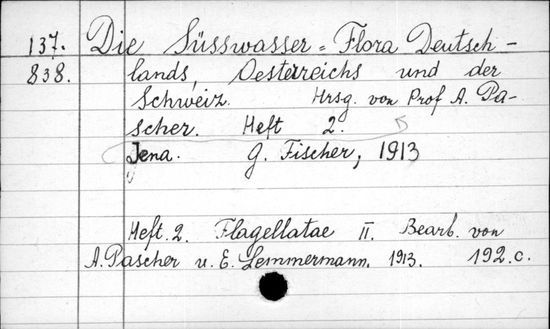 137. Die Süsswasser = Flora Deutsch-
838. lands, Oesterreichs und der
Schweiz. Hrsg. von Prof A. Pa-
scher. Heft 2.
Jena. G. Fischer, 1913
Heft. 2. Flagellatae II. Bearb. von
A. Pascher u. E. Lemmermann. 1913. 192.c.